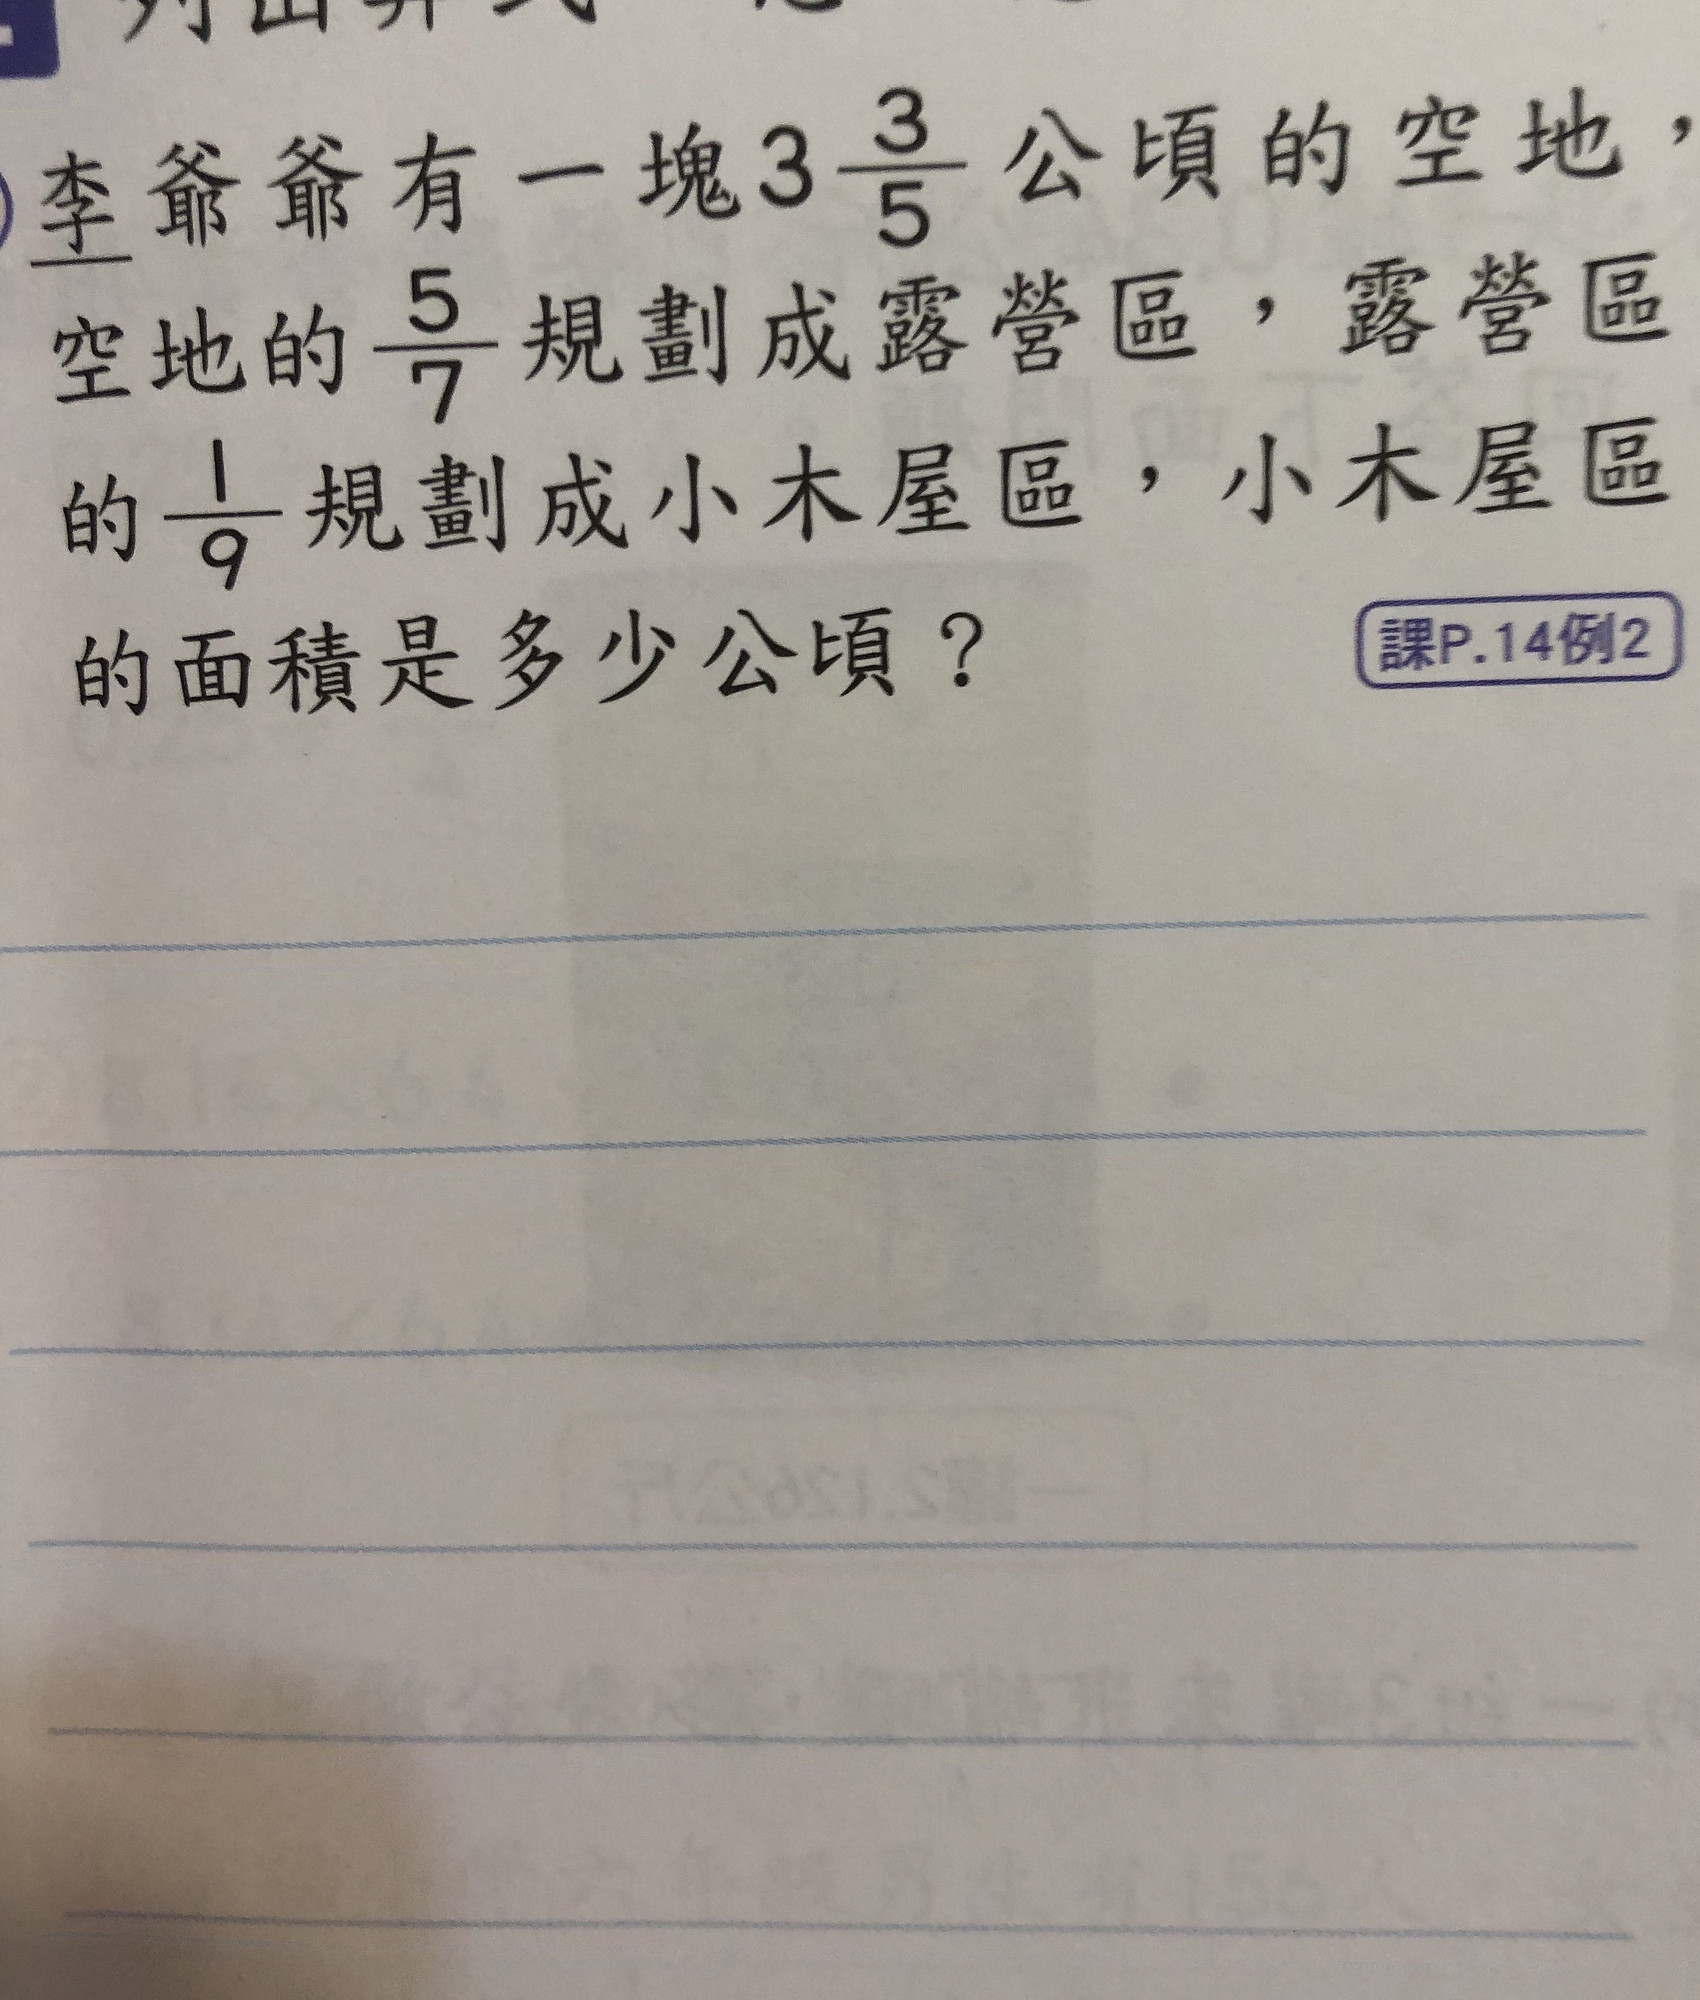 列出算式
李爺爺有一塊3 3/5 公頃的空地，
空地的 5/7 規劃成露營區，露營區
的 1/9 規劃成小木屋區，小木屋區
的面積是多少公頃？
課P.14例2